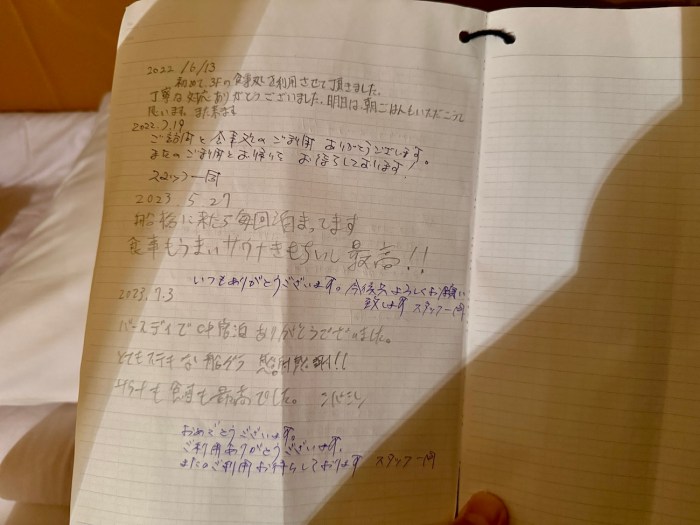 2022 /6/13
初めて、3Fの食事処を利用させて頂きました。
丁寧な対応ありがとうございました。明日は、朝ごはんもいただこうと
思います。また来ます
2022.7.19
ご訪問と食事処のご利用 ありがとうございます。
またのご利用とお帰りを お待ちしております。
スタッフ一同
2023. 5 27
船橋に来たら毎回泊まってます
食事もうまいサウナきもちいし 最高!!
いつもありがとうございます。今後共よろしくお願い
致します スタッフ一同
2023.7.3
バースデイで 宿泊 ありがとうございました。
とてもステキな 船グラ 感謝!!
サウナも 食事も最高でした。
おめでとうございます。
ご利用ありがとうございます。
またのご利用お待ちしております スタッフ一同